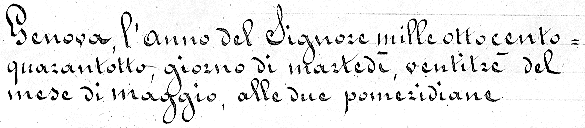 Genova, l'anno del Signore mille ottocento=
quarantotto, giorno di martedì, ventitrè del
mese di maggio, alle due pomeridiane